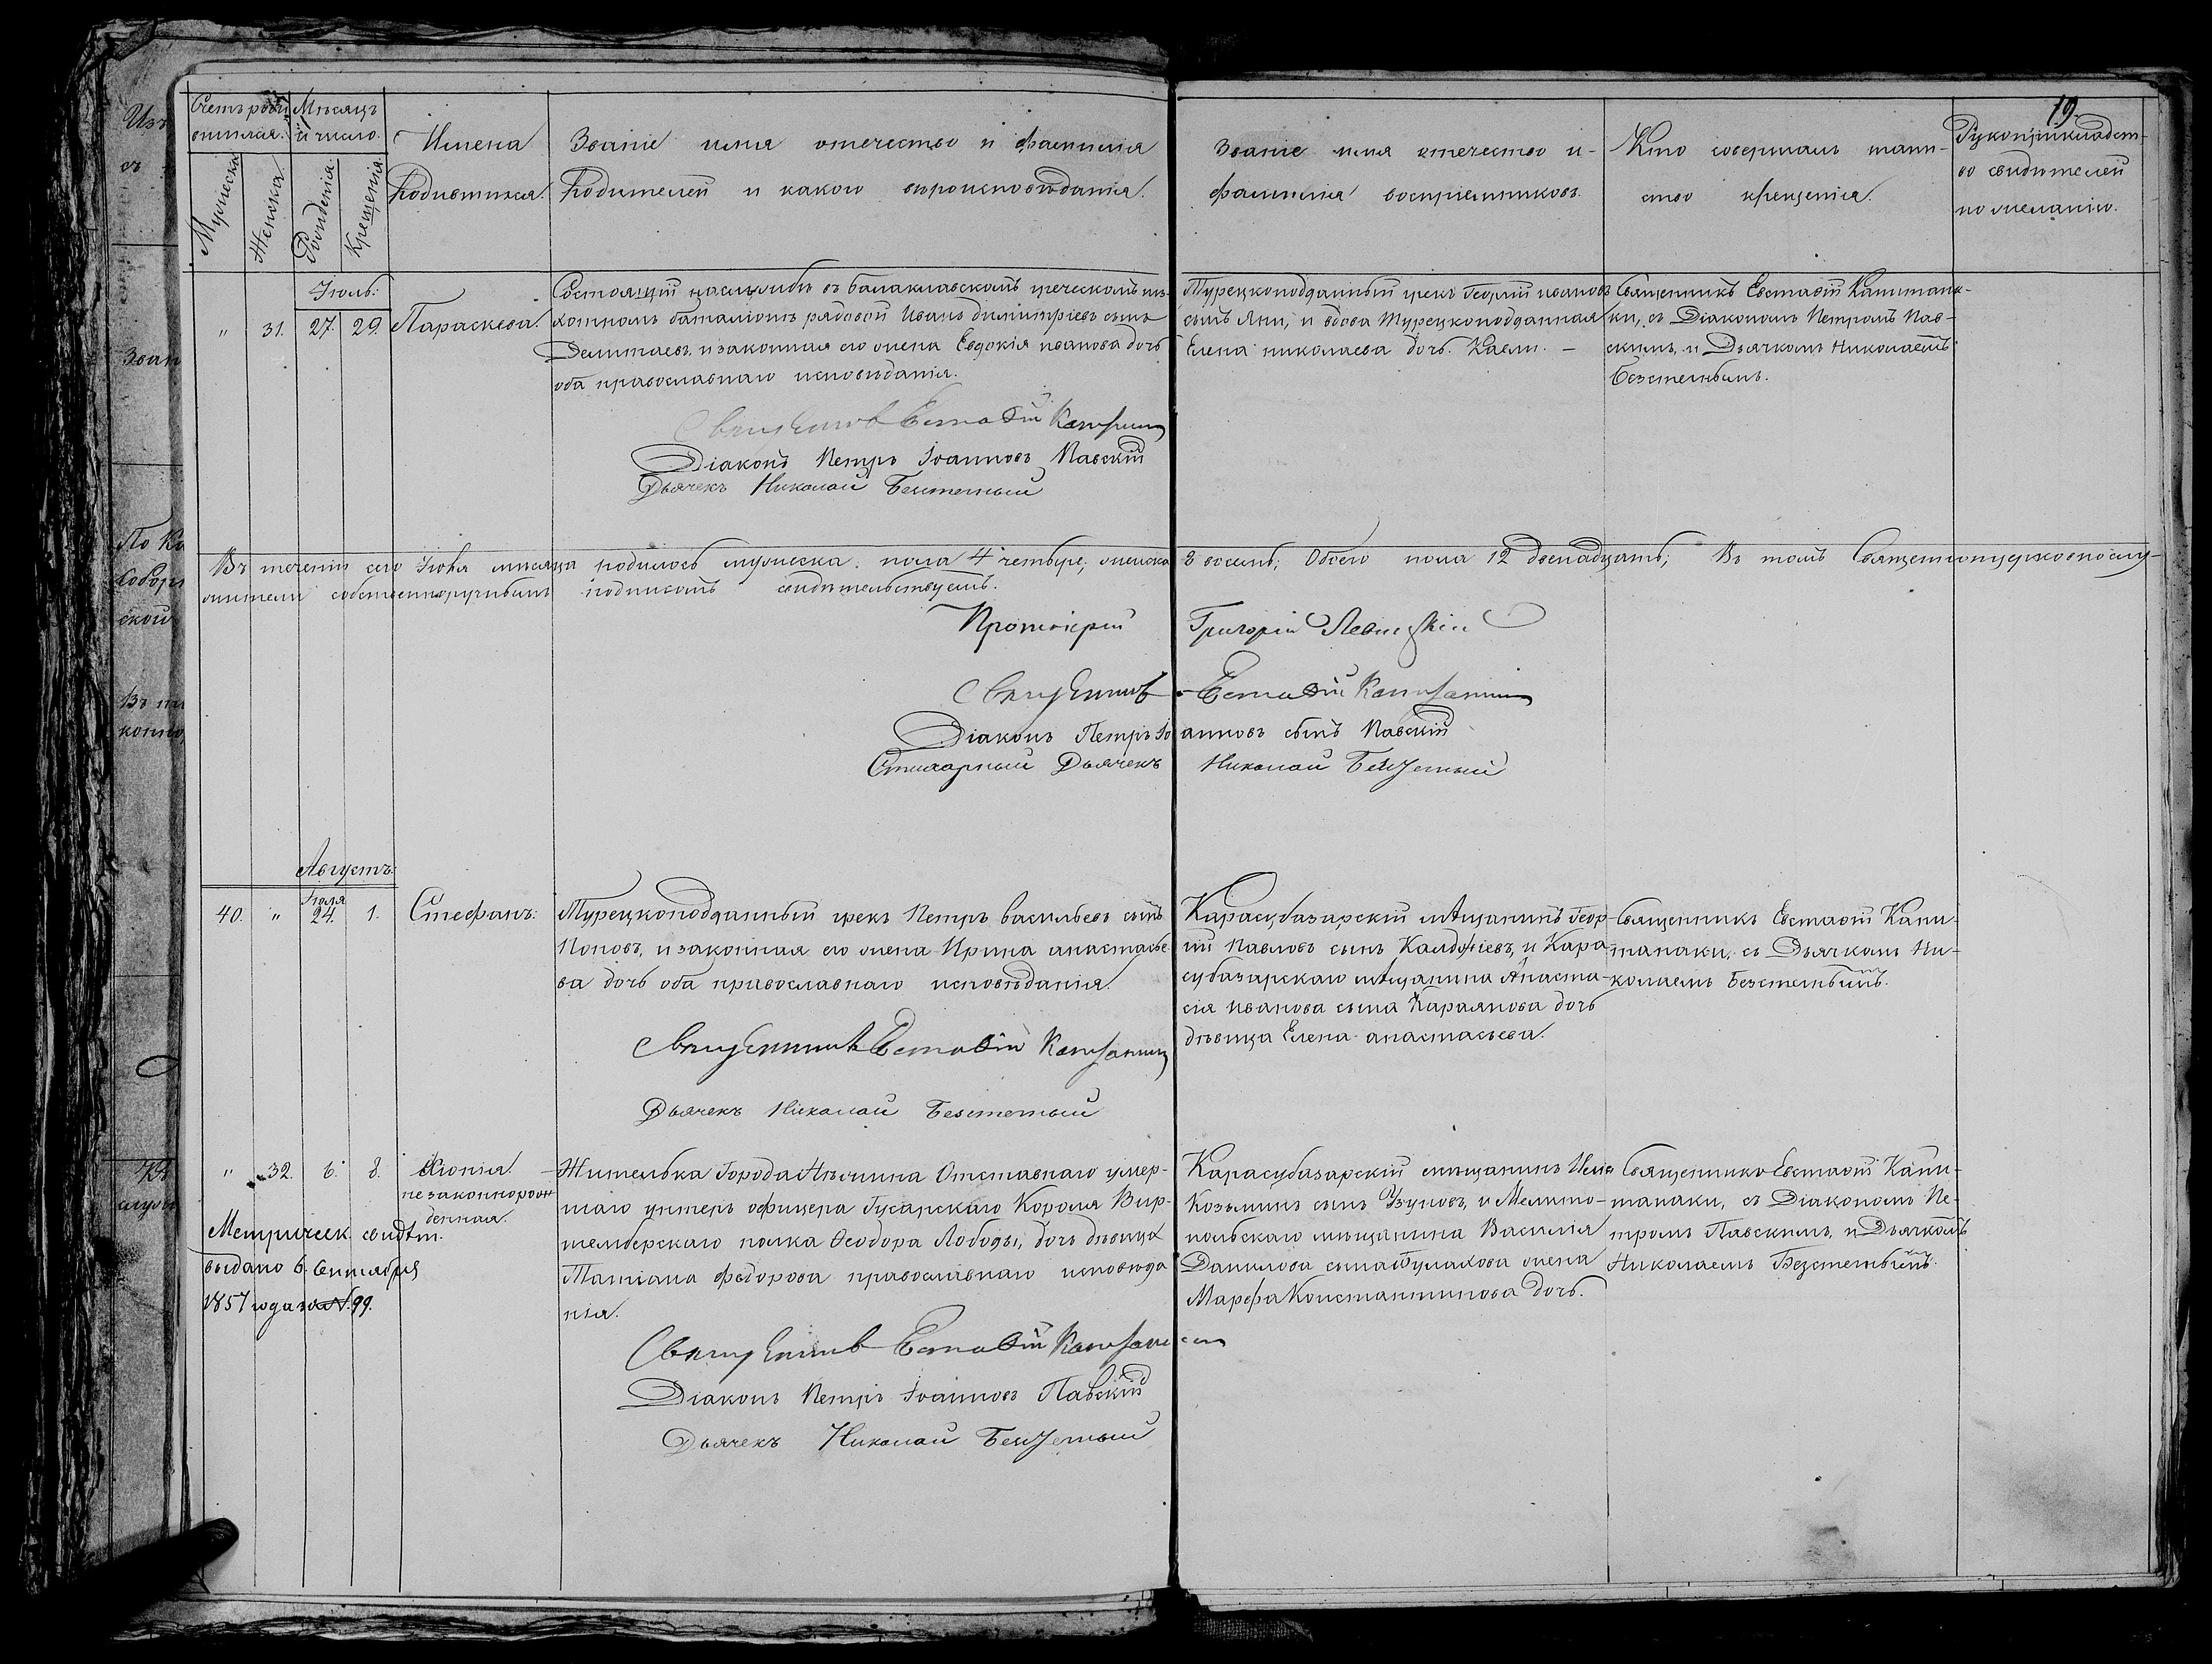 19.
Счетъ роди
вшихся.
Мѣсяцъ
и число.
Мужеска
Женска
Рожденія
Крещенія
Имена
Родившихся.
Званіе имя отечество и фамилія
Родителей и какого вѣроисповѣданія.
Званіе имя отечество и
фамилія воспріемниковъ.
Кто совершалъ таин-
ство крещенія.
Рукоприкладст-
во свидѣтелей
по желанію.
Іюль:
" 31. 27. 29. Параскева.
Состоящій наслужбѣ въ балаклавскомъ греческомъ пѣ-
хотномъ баталіонѣ рядовой Иванъ димитріевъ сынъ
и законная его жена Евдокія иванова дочь
оба православнаго исповѣданія.
Турецкоподданный грекъ Георгій ивановъ
сынъ Яни, и вдова Турецкоподданная
Елена николаева дочь.
Священникъ Евстафій Капитана-
ки, съ Діакономъ Петромъ Пав-
скимъ, и Дьячкомъ Николаемъ
Безстетнымъ.
Священникъ Евстафій Капитанаки
Діаконъ Петръ Іоанновъ Павскій
Дьячекъ Николай Безстетный
Въ теченіи сего Іюля мѣсяца родилось мужеска пола 4 четыре, женска 8 восемь, Обоего пола 12 двенадцать; Въ томъ Священноцерковнослу-
жители собственноручнымъ подписомъ свидѣтельствуемъ.
Протоіерей Григорій Левицкій
Священникъ Евстафій Капитанаки
Діаконъ Петръ Іоанновъ сынъ Павскій
Стихарный Дьячекъ Николай Безстетный
Августъ.
Іюля
40. " 24. 1. Стефанъ.
Турецкоподданный грекъ Петръ васильевъ сынъ
Поповъ, и законная его жена Ирина анастасье-
ва дочь оба православнаго исповѣданія.
Карасубазарскій мѣщанинъ Геор-
гій Павловъ сынъ Калджіевъ, и Кара-
субазарскаго мѣщанина Анаста-
сія иванова сына Караянова дочь
дѣвица Елена анастасьева.
Священникъ Евстафій Капи-
танаки, съ Дьячкомъ Ни-
колаемъ Безстетнымъ.
Священникъ Евстафій Капитанаки
Дьячекъ Николай Безстетный
" 32. 6. 8. Хіонія.
незаконнорож-
денная.
Метрическ. свидѣт.
выдано 6 Сентября
1857 года за N. 99.
Жителька Города Нѣжина Отставнаго умер-
шаго унтеръ офицера Гусарскаго Короля Вир-
тембергскаго полка Ѳеодора Лободы, дочь дѣвица
Татіана федорова православнаго исповѣда
нія.
Карасубазарскій мѣщанинъ Илія
Козьминъ сынъ Узуновъ, и Мелито-
польскаго мѣщанина Василія
Данилова сына Булахова жена
Марфа Константинова дочь.
Священникъ Евстафій Капи-
танаки, съ Діакономъ Пе-
тромъ Павскимъ, и Дьячкомъ
Николаемъ Безстетнымъ.
Священникъ Евстафій Капитанаки
Діаконъ Петръ Іоанновъ Павскій
Дьячекъ Николай Безстетный